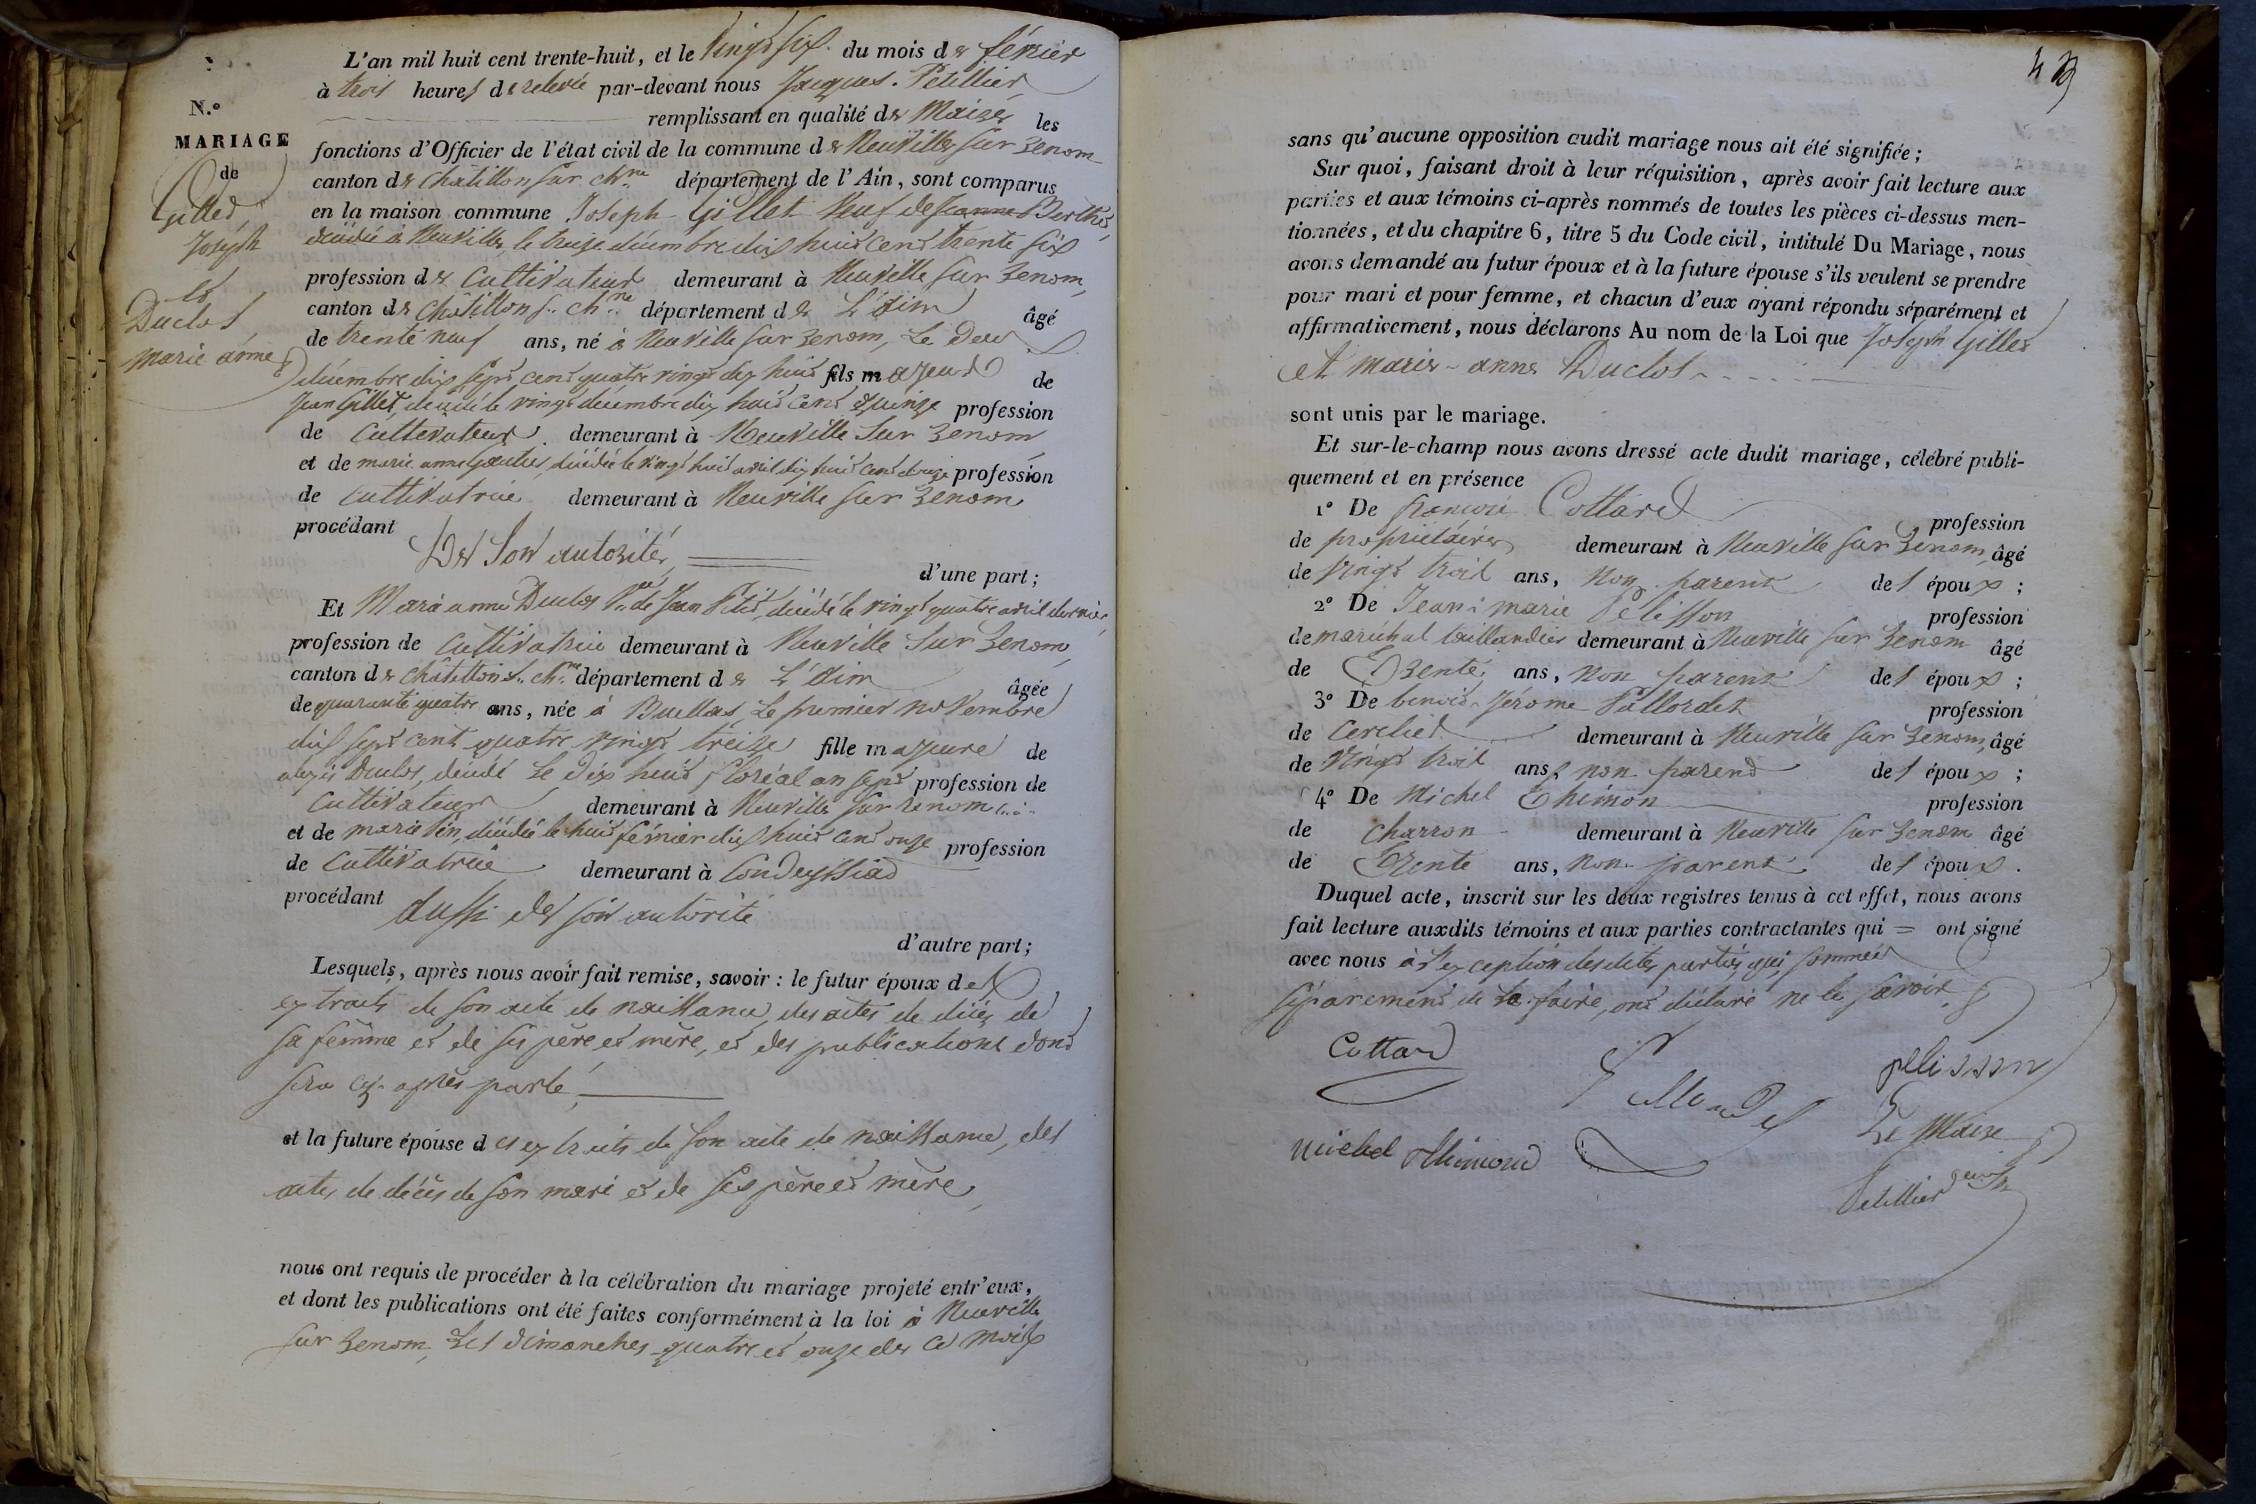 L'an mil huit cent trente-huit, et le vingt six du mois de février
à trois heures de relevée par-devant nous Jacques Petillier
remplissant en qualité de Maire les
N.º
MARIAGE
de
Gillet
Joseph
et
Duclos
marie anne
fonctions d'Officier de l'état civil de la commune de Neuville sur Renom
canton de Châtillon sur Ch.ne département de l'Ain, sont comparus
en la maison commune Joseph Gillet veuf de Jeanne Berthe
décédée à Neuville, le treize décembre dix huit cent trente six
profession de Cultivateur demeurant à Neuville sur Renom,
canton de Châtillon s. Ch.ne département de L'Ain âgé
de trente neuf ans, né à Neuville sur Renom, Le Deux
décembre dix sept cent quatre vingt dix huit fils majeur de
Jean Gillet, décédé le vingt décembre dix huit cent quinze profession
de Cultivateur demeurant à Neuville sur Renom
et de marie anne décédée le vingt huit avril dix huit cent douze profession
de Cultivatrice demeurant à Neuville sur Renom
procédant
De Son autorité,
d'une part;
Et Marie anne Duclos V.ve de Jean Petit, décédé le vingt quatre avril dernier,
profession de Cultivatrice demeurant à Neuville sur Renom,
canton de Châtillon s. Ch.ne département de L'Ain âgée
de quarante quatre ans, née à Buellas, Le premier novembre
dix sept cent quatre vingt treize fille majeure de
Duclos, décédé Le dix huit floréal an sept profession de
Cultivateur demeurant à Neuville sur renom
et de marie décédée le huit février dix huit cent onze profession
de Cultivatrice demeurant à Condeyssiat
procédant
aussi de son autorité
d'autre part;
Lesquels, après nous avoir fait remise, savoir : le futur époux des
extraits de son acte de naissance, des actes de décès de
sa femme et de ses père et mère, et des publications dont
sera cy-après parlé,
et la future épouse des extraits de son acte de naissance, des
actes de décès de son mari et de ses père et mère,
nous ont requis de procéder à la célébration du mariage projeté entr'eux,
et dont les publications ont été faites conformément à la loi à Neuville
sur Renom, Les dimanches quatre et onze de ce mois
sans qu'aucune opposition audit mariage nous ait été signifiée;
Sur quoi, faisant droit à leur réquisition, après avoir fait lecture aux
parties et aux témoins ci-après nommés de toutes les pièces ci-dessus men-
tionnées, et du chapitre 6, titre 5 du Code civil, intitulé Du Mariage, nous
avons demandé au futur époux et à la future épouse s'ils veulent se prendre
pour mari et pour femme, et chacun d'eux ayant répondu séparément et
affirmativement, nous déclarons Au nom de la Loi que Joseph Gillet
et marie-anne Duclos
sont unis par le mariage.
Et sur-le-champ nous avons dressé acte dudit mariage, célébré publi-
quement et en présence
1º De françois Cottard profession
de propriétaire demeurant à Neuville sur Renom, âgé
de vingt trois ans, non parent des époux ;
2º De Jean marie Pelisson profession
de maréchal taillandier demeurant à Neuville sur Renom âgé
de Trente ans, non parent des époux ;
3º De benoit Jérome profession
de Cerclier demeurant à Neuville sur Renom, âgé
de vingt trois ans, non parent des époux ;
4º De Michel Thimon profession
de Charron demeurant à Neuville sur Renom âgé
de Trente ans, non parent des époux.
Duquel acte, inscrit sur les deux registres tenus à cet effet, nous avons
fait lecture auxdits témoins et aux parties contractantes qui = ont signé
avec nous à l'exception desdites parties qui, sommées
séparément de le faire, ont déclaré ne le savoir.
Cottard
pelisson
Le Maire
michel thimond
Petillier